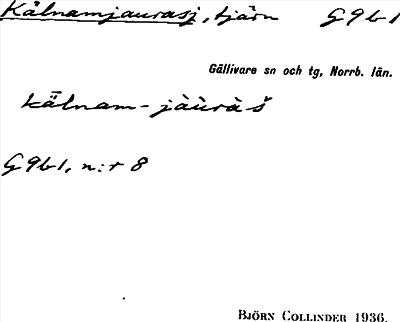 Kälnamjaurasj, tjärn G9b1
Gällivare sn och tg, Norrb. län.
kälnam-jàùràš
G9b1, n:r 8
BJÖRN COLLINDER 1936.